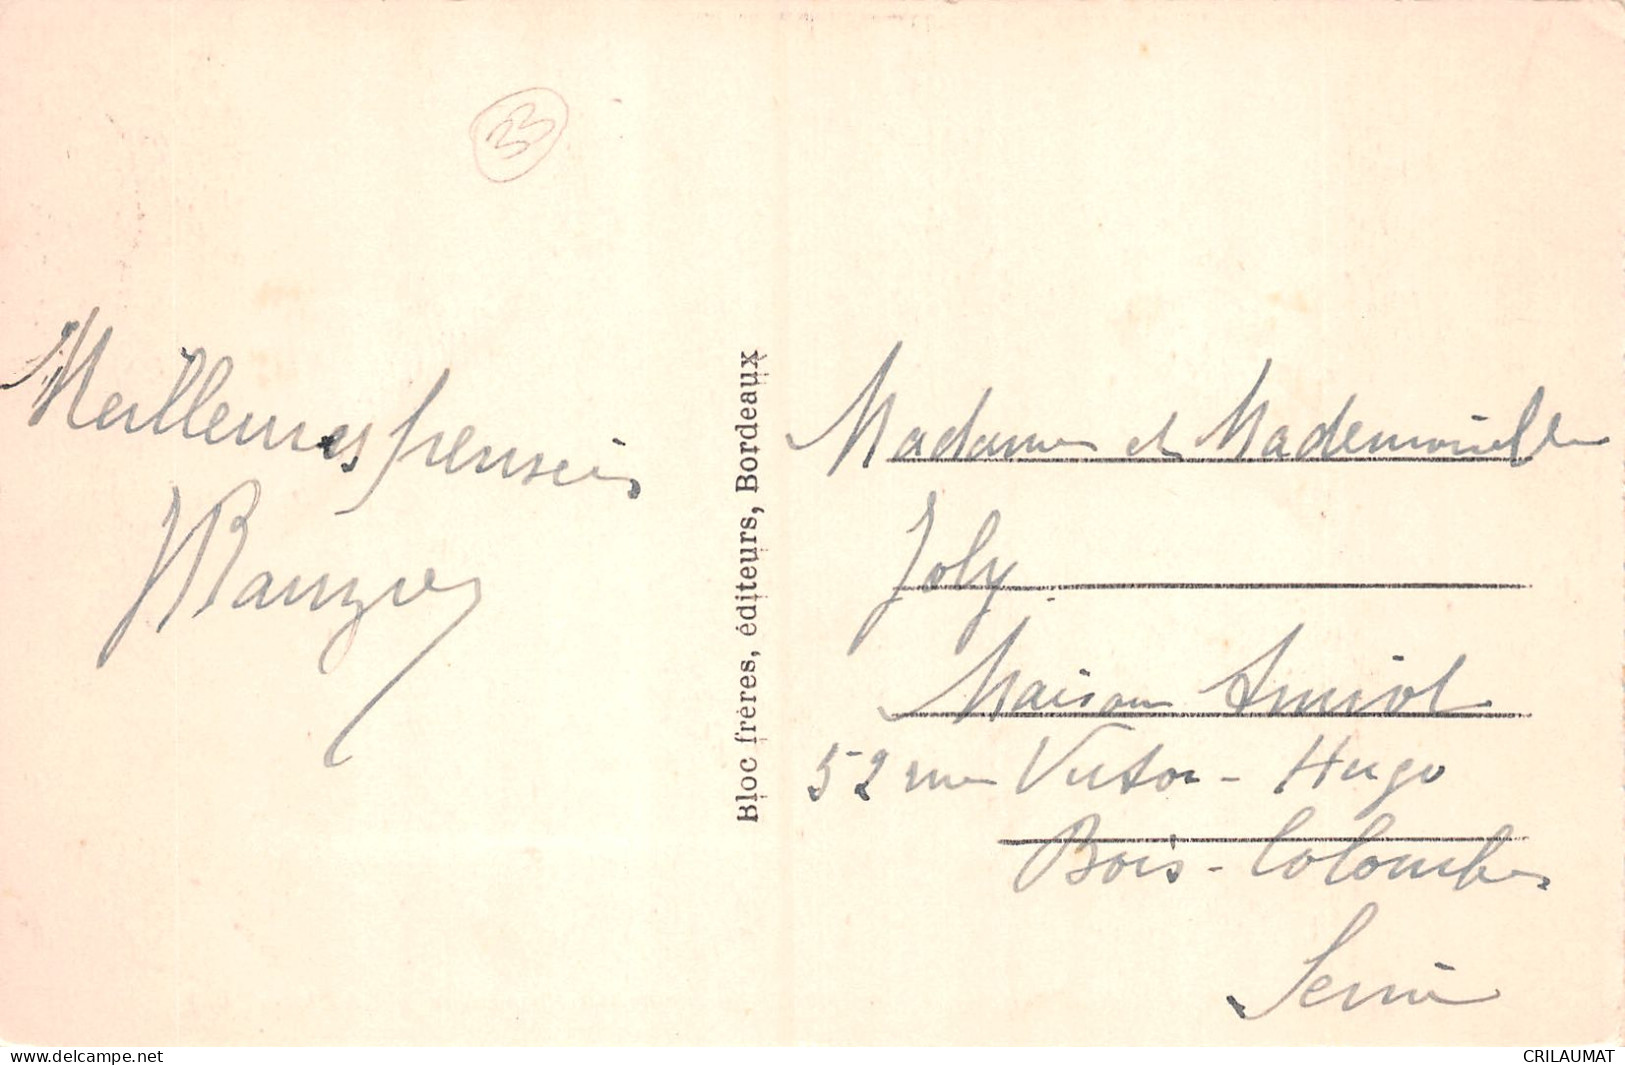 33
Meilleures pensées
Bloc frères, éditeurs, Bordeaux
Madame et Mademoiselle
Joly
Maison Amiot
52 rue Victor-Hugo
Bois-Colombes
Seine
www.delcampe.net
CRILAUMAT